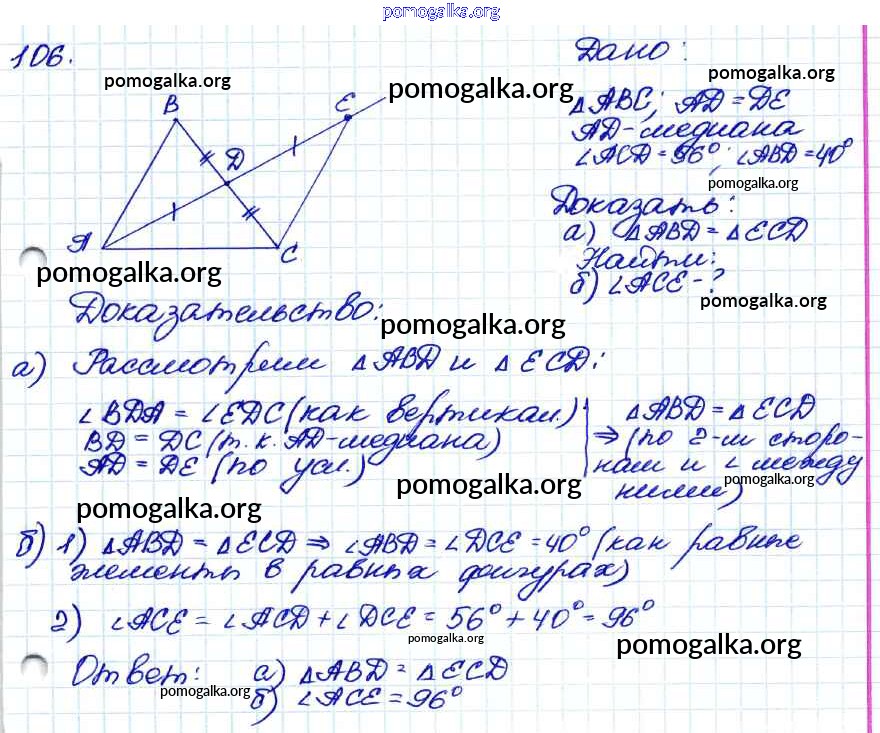 pomogalka.org
106.
Дано:
pomogalka.org
pomogalka.org
pomogalka.org
B
E
△ABC; AD = DE
AD-медиана
∠ACD = 56°; ∠ABD = 40°
D
pomogalka.org
Доказать:
а) △ABD = △ECD
A
C
Найти:
pomogalka.org
б) ∠ACE - ?
pomogalka.org
Доказательство:
pomogalka.org
а) Рассмотрим △ABD и △ECD:
∠BDA = ∠EDC (как вертикал.)
BD = DC (т.к. AD-медиана)
AD = DE (по усл.)
⇒ △ABD = △ECD
(по 2-м сторо-
нам и ∠ между
ними)
pomogalka.org
pomogalka.org
pomogalka.org
б) 1) △ABD = △ECD ⇒ ∠ABD = ∠DCE = 40° (как равные
элементы в равных фигурах)
2) ∠ACE = ∠ACD + ∠DCE = 56° + 40° = 96°
pomogalka.org
pomogalka.org
Ответ: а) △ABD = △ECD
pomogalka.org
б) ∠ACE = 96°